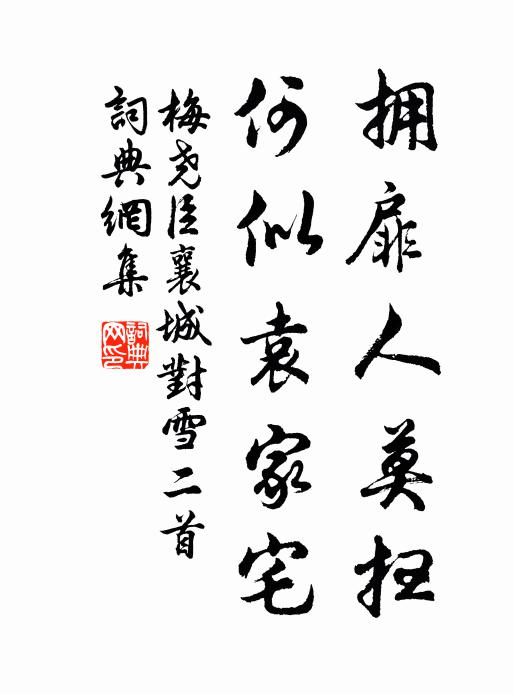 拥扉人莫扫
何似袁家宅
梅尧臣襄城對雪二首
詞典網集
詞典网印